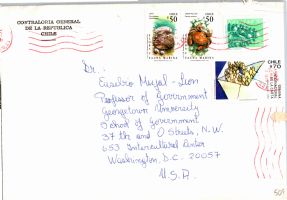 CONTRALORIA GENERAL
DE LA REPUBLICA
CHILE
CHILE
$50
FAUNA MARINA
CHILE
$50
FAUNA MARINA
CHILE
$70
Dr.:
Eusebio Mujal-Leon
Professor of Government
Georgetown University
School of Government
37 th and O Streets, N.W.
653 Intercultural Center
Washington, D.C. 20057
U.S.A.